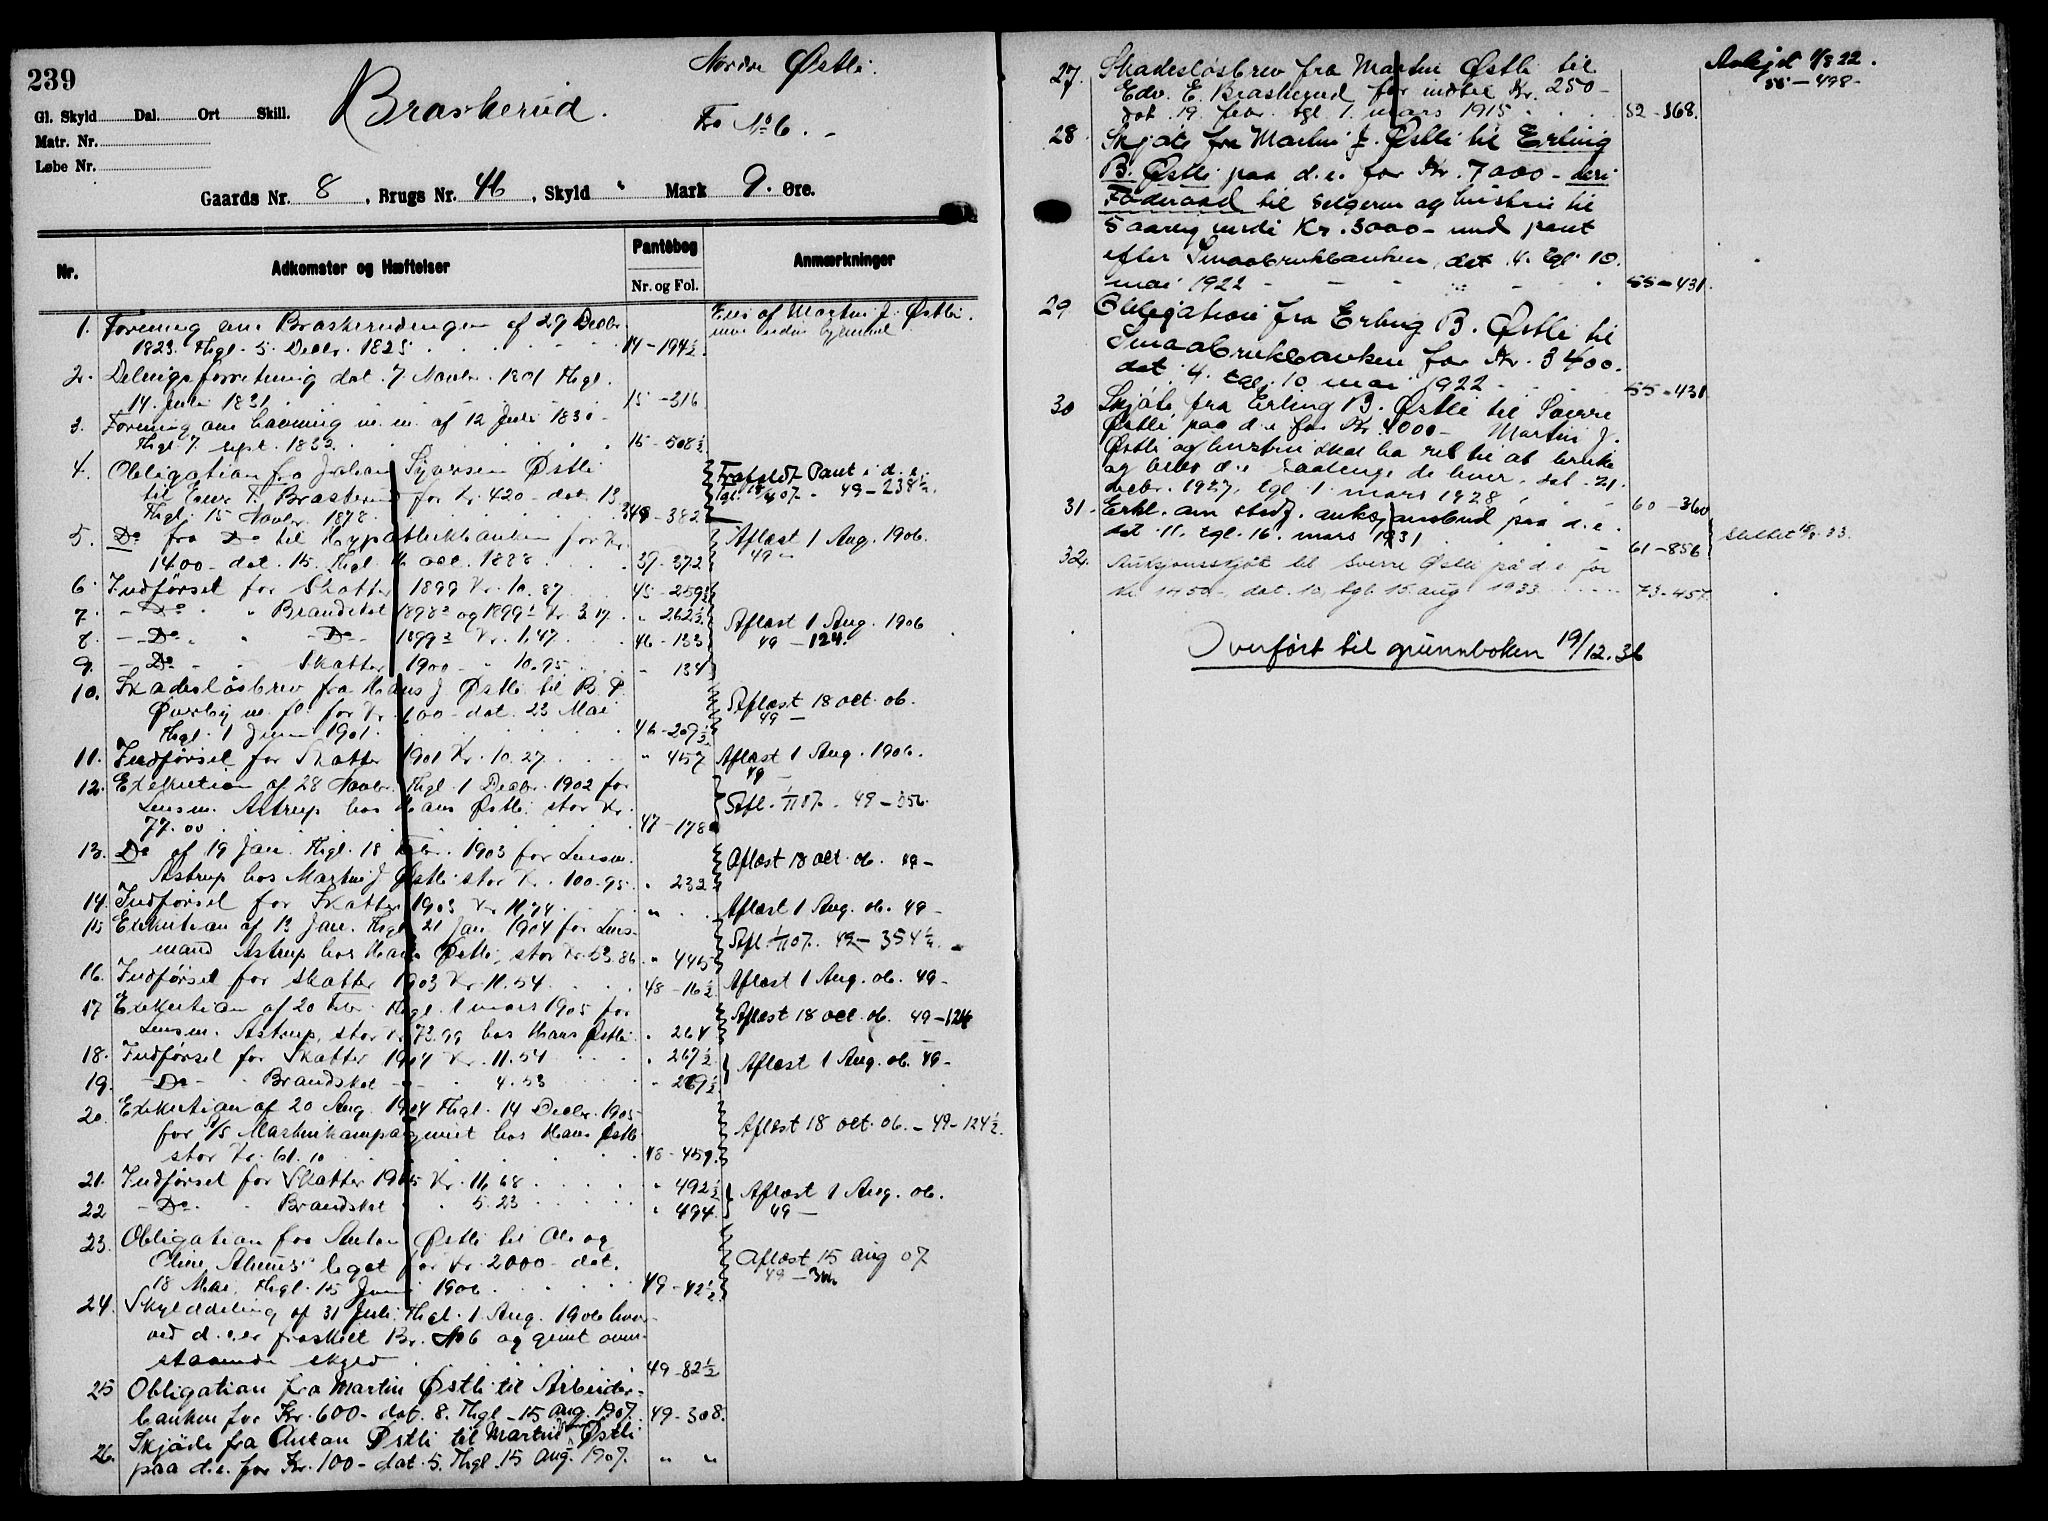 239
Gl. Skyld Dal. Ort Skill.
Matr. Nr.
Løbe Nr.
Braskerud.
Nordre Østli.
Fra No 6. -
Gaards Nr. 8, Brugs Nr. 46, Skyld " Mark 9. Øre.
Nr. Adkomster og Hæftelser Pantebog Nr. og Fol. Anmærkninger
1. Forening om Braskerudengen af 29 Decbr. Eies af Martin J. Østli.
1823. Thgl. 5. Decbr. 1825 14-194½
2. Delingsforretning dat. 7. Novbr. 1801 Thgl.
14. Juli 1831 15-316
3. Forening om havning m. m. af 12 Juli 1830
Thgl. 7. sept. 1833 15-508½
4. Obligation fra Johan Østli Frafaldt Pant i d. e.
til Braskerud for Kr. 420- dat. 13 49-238½
Thgl. 15 Novbr. 1878. -382
5. Do fra Do til Hypothekbanken for Kr. Aflæst 1 Aug. 1906.
1400- dat. 15. Thgl. 16 oct. 1888 39-372 49-
6. Indførsel for Skatter 1899 Kr. 10.87 45-259½
7. - Do - " Brandskat 1898 og 1899 Kr. 3.17 " 262½ Aflæst 1 Aug. 1906
8. - Do - " - Do - 1899 Kr. 1.47 46-133 49-124.
9. - Do - " Skatter 1900 - " 10.95 " 134
10. Skadesløsbrev fra Hans J Østli til B. P. Aflæst 18 oct. 06.
Øverby m. fl. for Kr. 600- dat. 23 Mai 49-
Thgl. 1 Juni 1901. 46-207½
11. Indførsel for Skatter 1901 Kr. 10.27 " 457 Aflæst 1 Aug. 1906.
12. Exekution af 28 Novbr. Thgl. 1 Decbr. 1902 for 49-
Lensm. Astrup hos Hans Østli stor Kr. Afl. 1/11 07. 49-356.
77.00 47-178
13. Do af 19 Jan. Thgl. 18 Febr. 1903 for Lensm. Aflæst 18 oct. 06. 49-
Astrup hos Martin J Østli stor Kr. 100.95 " 232
14. Indførsel for Skatter 1903 Kr. 11.74 " Aflæst 1 Aug. 06. 49-
15 Exekution af 13 Jan. Thgl. 21 Jan 1904 for Lens-
mand Astrup hos Hans Østli, stor Kr. 53.86 " 445 Afl. 1/11 07. 49-354½.
16. Indførsel for skatter 1903 Kr. 11.54 48-16½ Aflæst 1 Aug. 06. 49-
17 Exekution af 20 Febr. Thgl. 1 mars 1905 for Aflæst 18 oct. 06. 49-124
Lensm. Astrup, stor Kr. 73.99 hos Hans Østli " 264
18. Indførsel for Skatter 1904 Kr. 11.54 " 267½ Aflæst 1 Aug. 06. 49-
19. - Do - " Brandskat - " - 4.53 " 269½
20. Exekution af 20 Aug. 1904 Thgl. 14 Decbr. 1905 Aflæst 18 oct. 06. - 49-124½.
for A/S hos Hans Østli
stor Kr. 61.10 48-459.
21. Indførsel for Skatter 1905 Kr. 11,68 " 492½ Aflæst 1 Aug. 06.
22 - Do - " Brandskat " 5.23 " 494. 49-
23. Obligation fra Anton Østli til Ole og
Eline legat for Kr. 2000- dat. Aflæst 15 aug 07
18 Mai, Thgl. 15 Juni 1906 49-42½
24. Skylddeling af 31 Juli. Thgl. 1. Aug. 1906 hvor-
ved d. e. er fraskilt Br. No 6 og givet oven-
staaende skyld 49-82½
25 Obligation fra Martin Østli til Arbeider-
banken for Kr. 600- dat. 8. Thgl. 15 aug. 1907. 49-308.
26. Skjøde fra Anton Østli til Martin Østli
paa d.e. for Kr. 100- dat. 5. Thgl. 15 aug. 1907. " "
27. Skadesløsbrev fra Martin Østli til Avlyst 1/8 22.
Edv. E. Braskerud for indtil Kr. 250- 55-498-
dat. 19. febr. tgl. 1. mars 1915 52-368.
28. Skjøte fra Martin J. Østli til Erling
B. Østli paa d. e. for Kr. 7000- deri
Føderaad til selgeren og hustru til
5 aarig værdi Kr. 3000- med pant
efter Smaabrukbanken, dat. 4. tgl. 10.
mai 1922 55-431.
29 Obligation fra Erling B. Østli til
Smaabrukbanken for Kr. 3400.
dat. 4. tgl. 10 mai 1922 55-431
30 Skjøte fra Erling B. Østli til Sverre
Østli paa d. e. for Kr. 4000- Martin J.
Østli og hustru skal ha ret til at bruke
og bebo d.e. saalenge de lever, dat. 21.
decbr. 1927, tgl. 1. mars 1928 60-360
31. Erkl. om stedf. auksjonsbud paa d. e.
dat. 11. tgl. 16. mars 1931 61-856 slettet 33.
32. Auksjonsskjøte til Sverre Østli på d. e. for
kr. 1450- dat. 10, tgl. 15. aug. 1933 73-457.
Overført til grunnboken 19/12.36